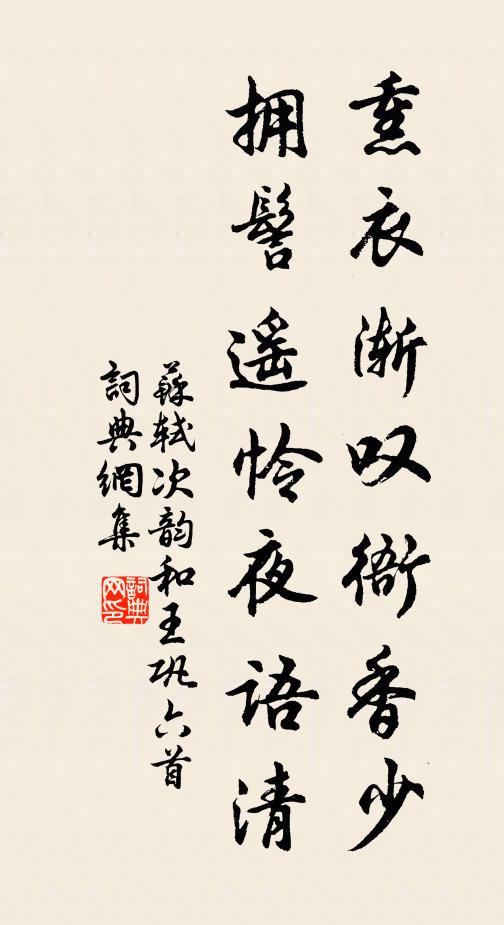 熏衣渐叹衙香少
拥髻遥怜夜语清
蘇軾次韵和王巩六首
詞典網集
詞典
网印